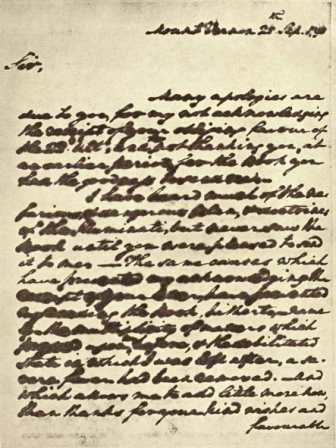 Mount Vernon 25th Sep. 1798
Sir,
Many apologies are
due to you, for my not acknowledging
the receipt of your obliging favour of
the 22d. Ult, and for not thanking you, at
an earlier period, for the Book you
had the goodness to send me.
I have heard much of the ne-
farious, & dangerous plan, & doctrines
of the Illuminati, but never saw the
Book until you were pleased to send
it to me.—The same causes which
have prevented my acknowledging the
receipt of your letter, have prevented
my reading the Book, hitherto; namely
the multiplicity of matters which
pressed upon me before, & the debilitated
state in which I was left after, a se-
vere fever had been removed. And
which allows me to add little more now,
than thanks for your kind wishes and
favourable